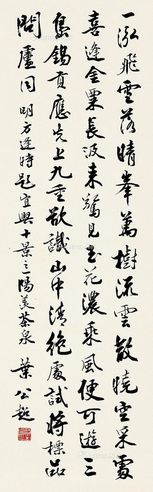 一泓飛雲落晴峯萬樹流雲散曉空采處
喜逢金粟長汲來驚見玉花濃乘風便可遊三
島錫貢應先上九重欲識山中清絕處試將標品
問盧仝 明方逢時題宜興十景之陽羨茶泉 葉公超